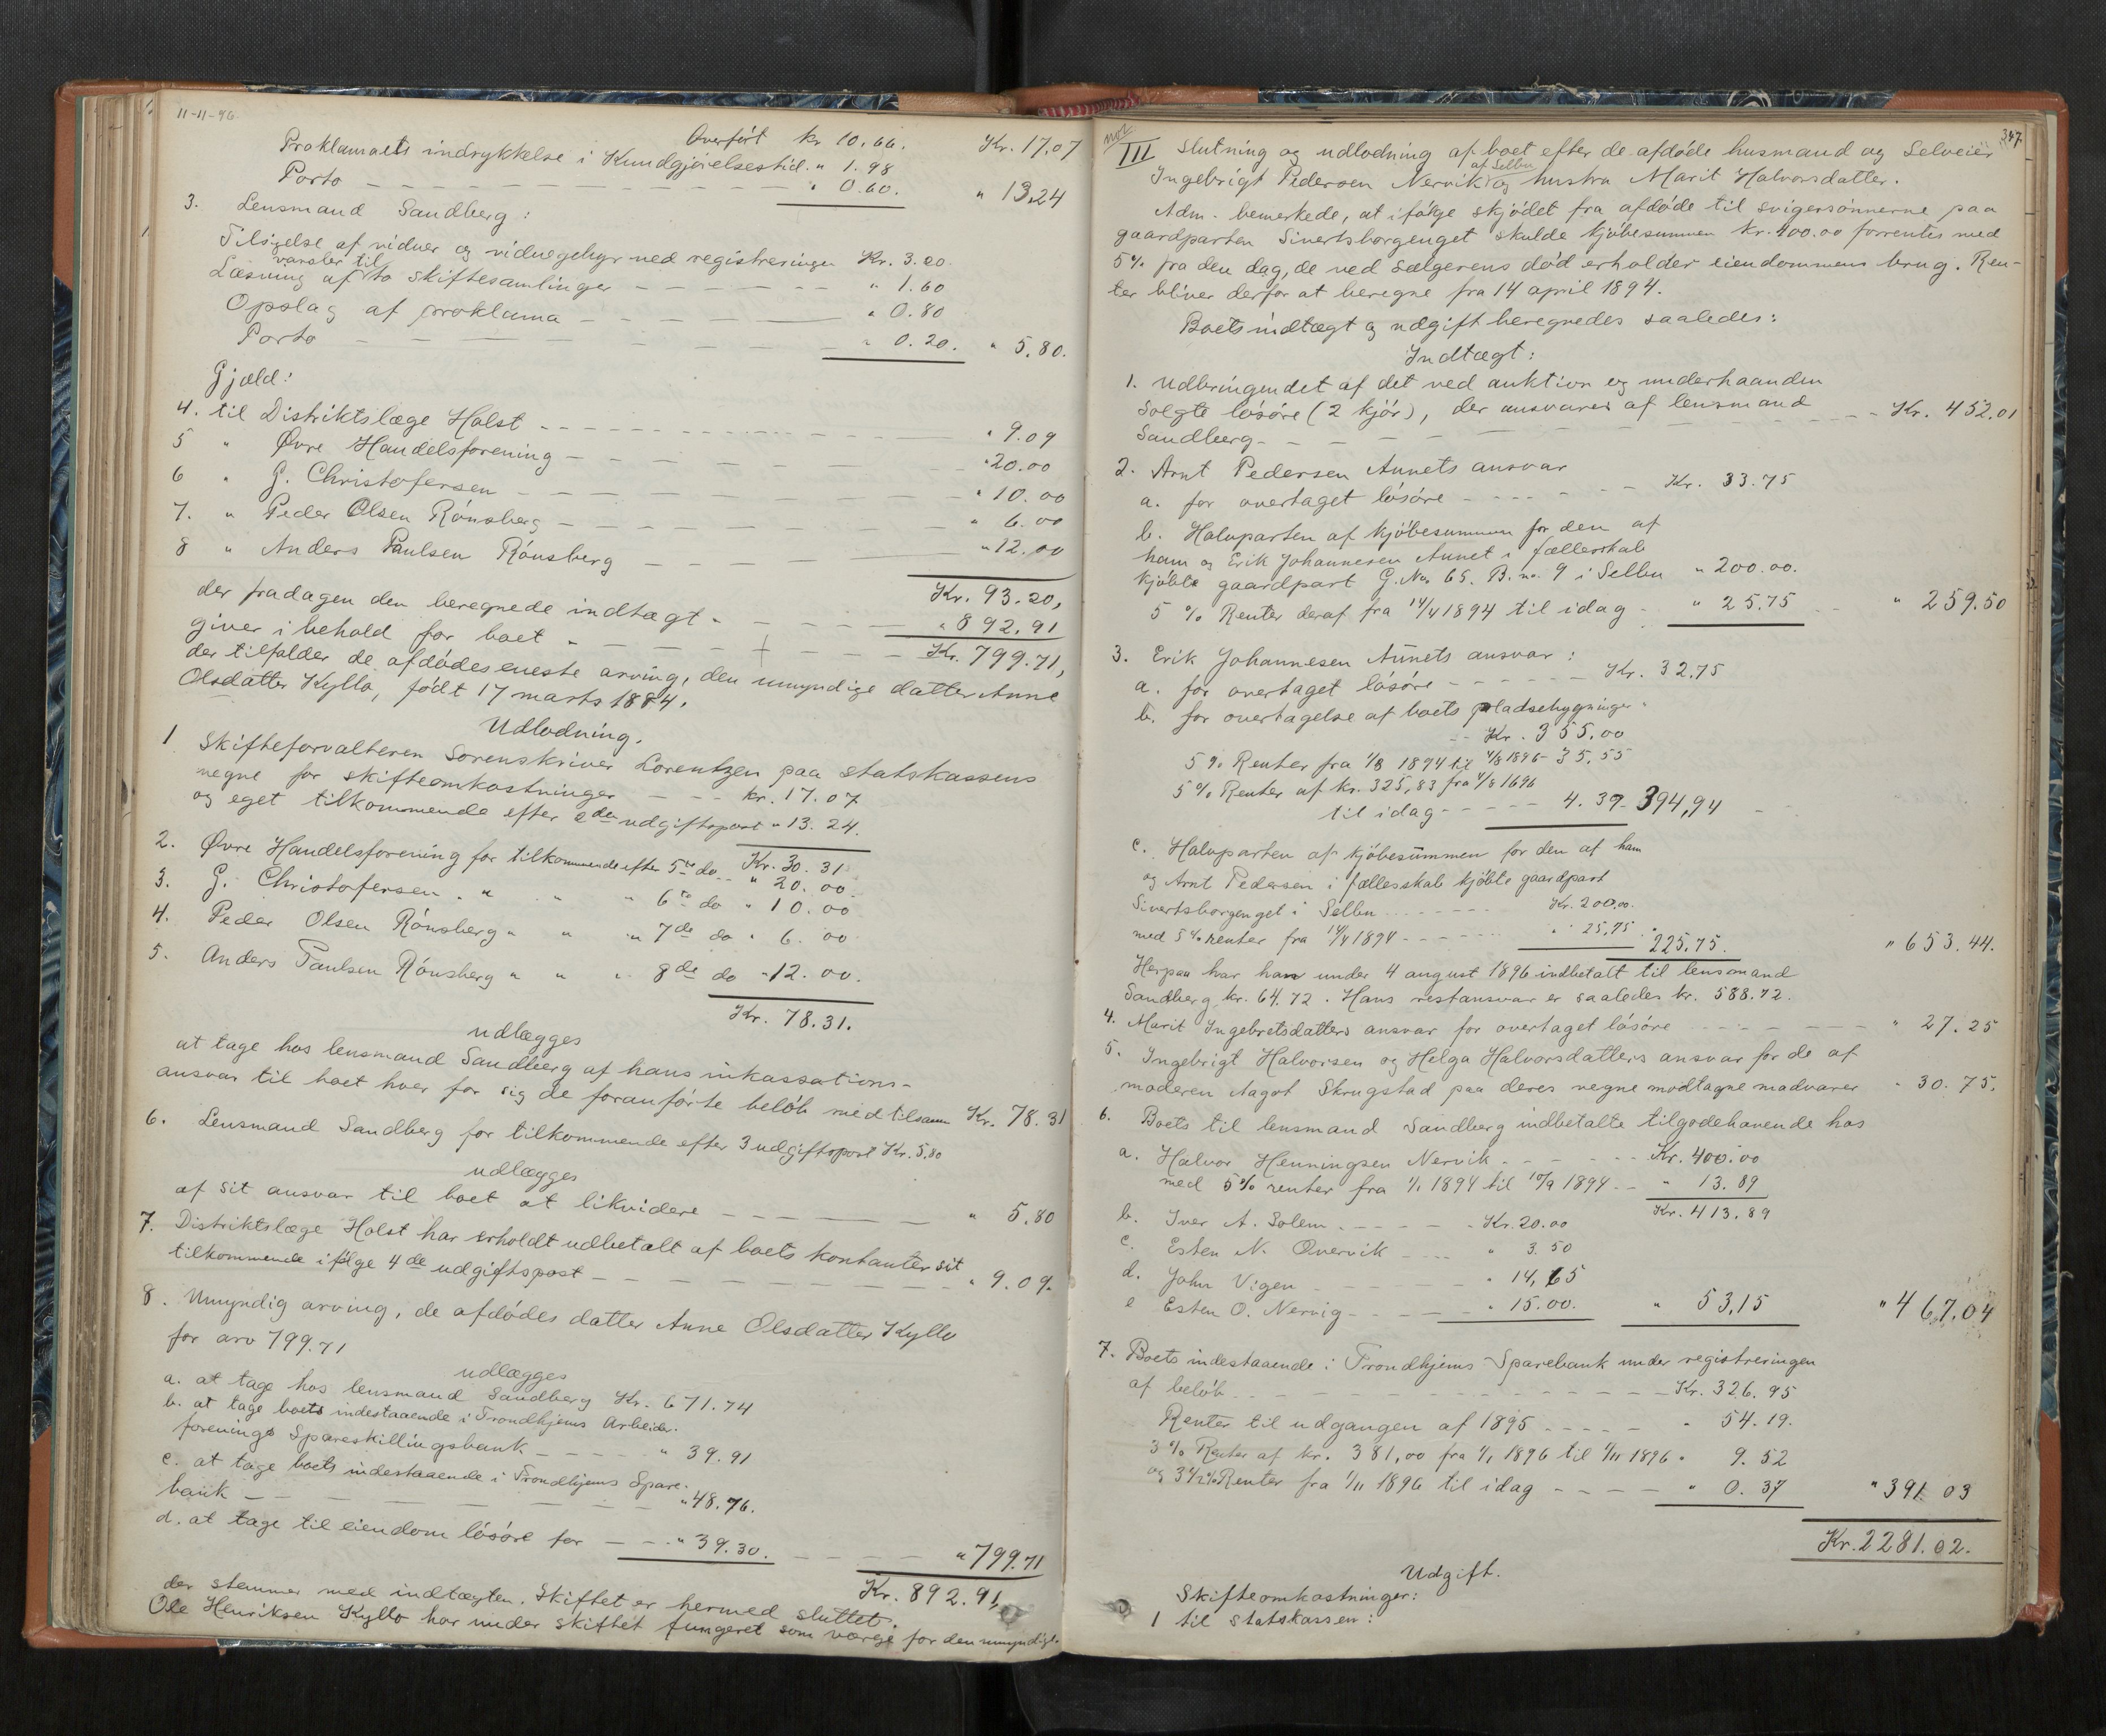 11-11-96
Overført kr 10.66. Kr. 17.07
Proklamaets indrykkelse i Kundgjørelsestid. " 1.98
Porto " 0.60. " 13.24
3. Lensmand Sandberg:
Tilsigelse af vidner og vidnegebyr ved registreringen Kr. 3.20
varsler til
Læsning af to skiftesamlinger " 1.60
Opslag af proklama " 0.80
Porto " 0.20. " 5.80.
Gjæld:
4. til Distriktslæge Holst " 9.09
5 " Øvre Handelsforening " 20.00
6 " G. Christofersen " 10.00
7. " Peder Olsen Rønsberg " 6.00
8 " Anders Paulsen Rønsberg " 12.00
Kr. 93.20,
der fradagen den beregnede indtægt " 892.91
giver i behold for boet Kr. 799.71,
der tilfalder de afdødes eneste arving, den umyndige datter Anne
Olsdatter Kyllo, født 17 marts 1884.
Udlodning.
1 Skifteforvalteren Sorenskriver Lorentzen paa statskassens
vegne for skifteomkostninger kr. 17.07
og eget tilkommende efter 2den udgiftspost " 13.24.
Kr. 30.31
2. Øvre Handelsforening for tilkommende efter 5te do " 20.00
3. G. Christofersen " " " 6te do " 10.00
4. Peder Olsen Rønsberg " " " 7de do " 6.00
5. Anders Paulsen Rønsberg " " " 8de do " 12.00.
Kr. 78.31.
udlægges
at tage hos lensmand Sandberg af hans inkassations-
ansvar til boet hver for sig de foranførte beløb med tilsam Kr. 78.31
6. Lensmand Sandberg for tilkommende efter 3 udgiftspost Kr. 5.80
udlægges
af sit ansvar til boet at likvidere " 5.80
7. Distriktslæge Holst har erholdt udbetalt af boets kontanter sit
tilkommende ifølge 4de udgiftspost " 9.09.
8. Umyndig arving, de afdødes datter Anne Olsdatter Kyllo
for arv 799.71
udlægges
a. at tage hos lensmand Sandberg Kr. 671.74
b. at tage boets indestaaende i Trondhjems Arbeider-
forenings Spareskillingsbank " 39.91
c. at tage boets indestaaende i Trondhjems Spare-
bank " 48.76.
d. at tage til eiendom løsøre for " 39.30. " 799.71
Kr. 892.91,
der stemmer med indtægten. Skiftet er hermed sluttet.
Ole Henriksen Kyllo har under skiftet fungeret som værge for den umyndige.
347.
III Slutning og udlodning af boet efter de afdøde husmand og Selveier
af Selbu
Ingebrigt Pedersen Nervik og hustru Marit Halvorsdatter.
Adm. bemerkede, at ifølge skjødet fra afdøde til svigersønnerne paa
gaardparten Sivertsborgenget skulde kjøbesummen kr. 400.00 forrentes med
5% fra den dag, de ved sælgerens død erholder eiendommens brug. Ren-
ter bliver derfor at beregne fra 14 april 1894.
Boets indtægt og udgift beregnedes saaledes:
Indtægt:
1. Udbringendet af det ved auktion og underhaanden
solgte løsøre (2 kjør), der ansvares af lensmand
Sandberg Kr. 452.01
2. Arnt Pedersen Aunets ansvar
a. for overtaget løsøre Kr. 33.75
b. Halvparten af kjøbesummen for den af
ham og Erik Johannesen Aunet i fællesskab
kjøbte gaardpart G. No 65. B. no. 9 i Selbu " 200.00.
5 % Renter deraf fra 14/4 1894 til idag " 25.75 " 259.50
3. Erik Johannesen Aunets ansvar:
a. for overtaget løsøre Kr. 32.75
b. for overtagelse af boets pladsebygninger
Kr. 355.00
5 % Renter fra 1/8 1894 til 4/8 1896 - 35.55
5 % Renter af kr. 325,83 fra 4/8 1696
til idag 4.39 394,94
c. Halvparten af kjøbesummen for den af ham
og Arnt Pedersen i fællesskab kjøbte gaardpart
Sivertsborgenget i Selbu Kr. 200.00.
med 5 % renter fra 14/4 1894 " 25,75 225.75. " 653.44.
Herpaa har han under 4 august 1896 indbetalt til lensmand
Sandberg kr. 64.72. Hans restansvar er saaledes kr. 588.72.
4. Marit Ingebretsdatters ansvar for overtaget løsøre " 27.25
5. Ingebrigt Halvorsen og Helga Halvorsdatters ansvar for de af
moderen Aagot Skrugstad paa deres vegne modtagne madvarer " 30.75.
6. Boets til lensmand Sandberg indbetalte tilgodehavende hos
a. Halvor Henningsen Nervik Kr. 400.00
med 5 % renter fra 1/1 1894 til 10/9 1894 " 13.89
Kr. 413.89
b. Iver A. Solem Kr. 20.00
c. Esten N. Overvik " 3.50
d. John Vigen " 14,65
e Esten O. Nervig " 15.00. " 53,15 " 467.04
7. Boets indestaaende i Trondhjems Sparebank under registreringen
af beløb Kr. 326.95
Renter til udgangen af 1895 " 54.19.
3 % Renter af kr. 381,00 fra 1/1 1896 til 1/11 1896 " 9.52
og 3 1/2 % Renter fra 1/11 1896 til idag " 0.37 " 391.03
Kr. 2281.02.
Udgift.
Skifteomkostninger:
1 til statskassen: